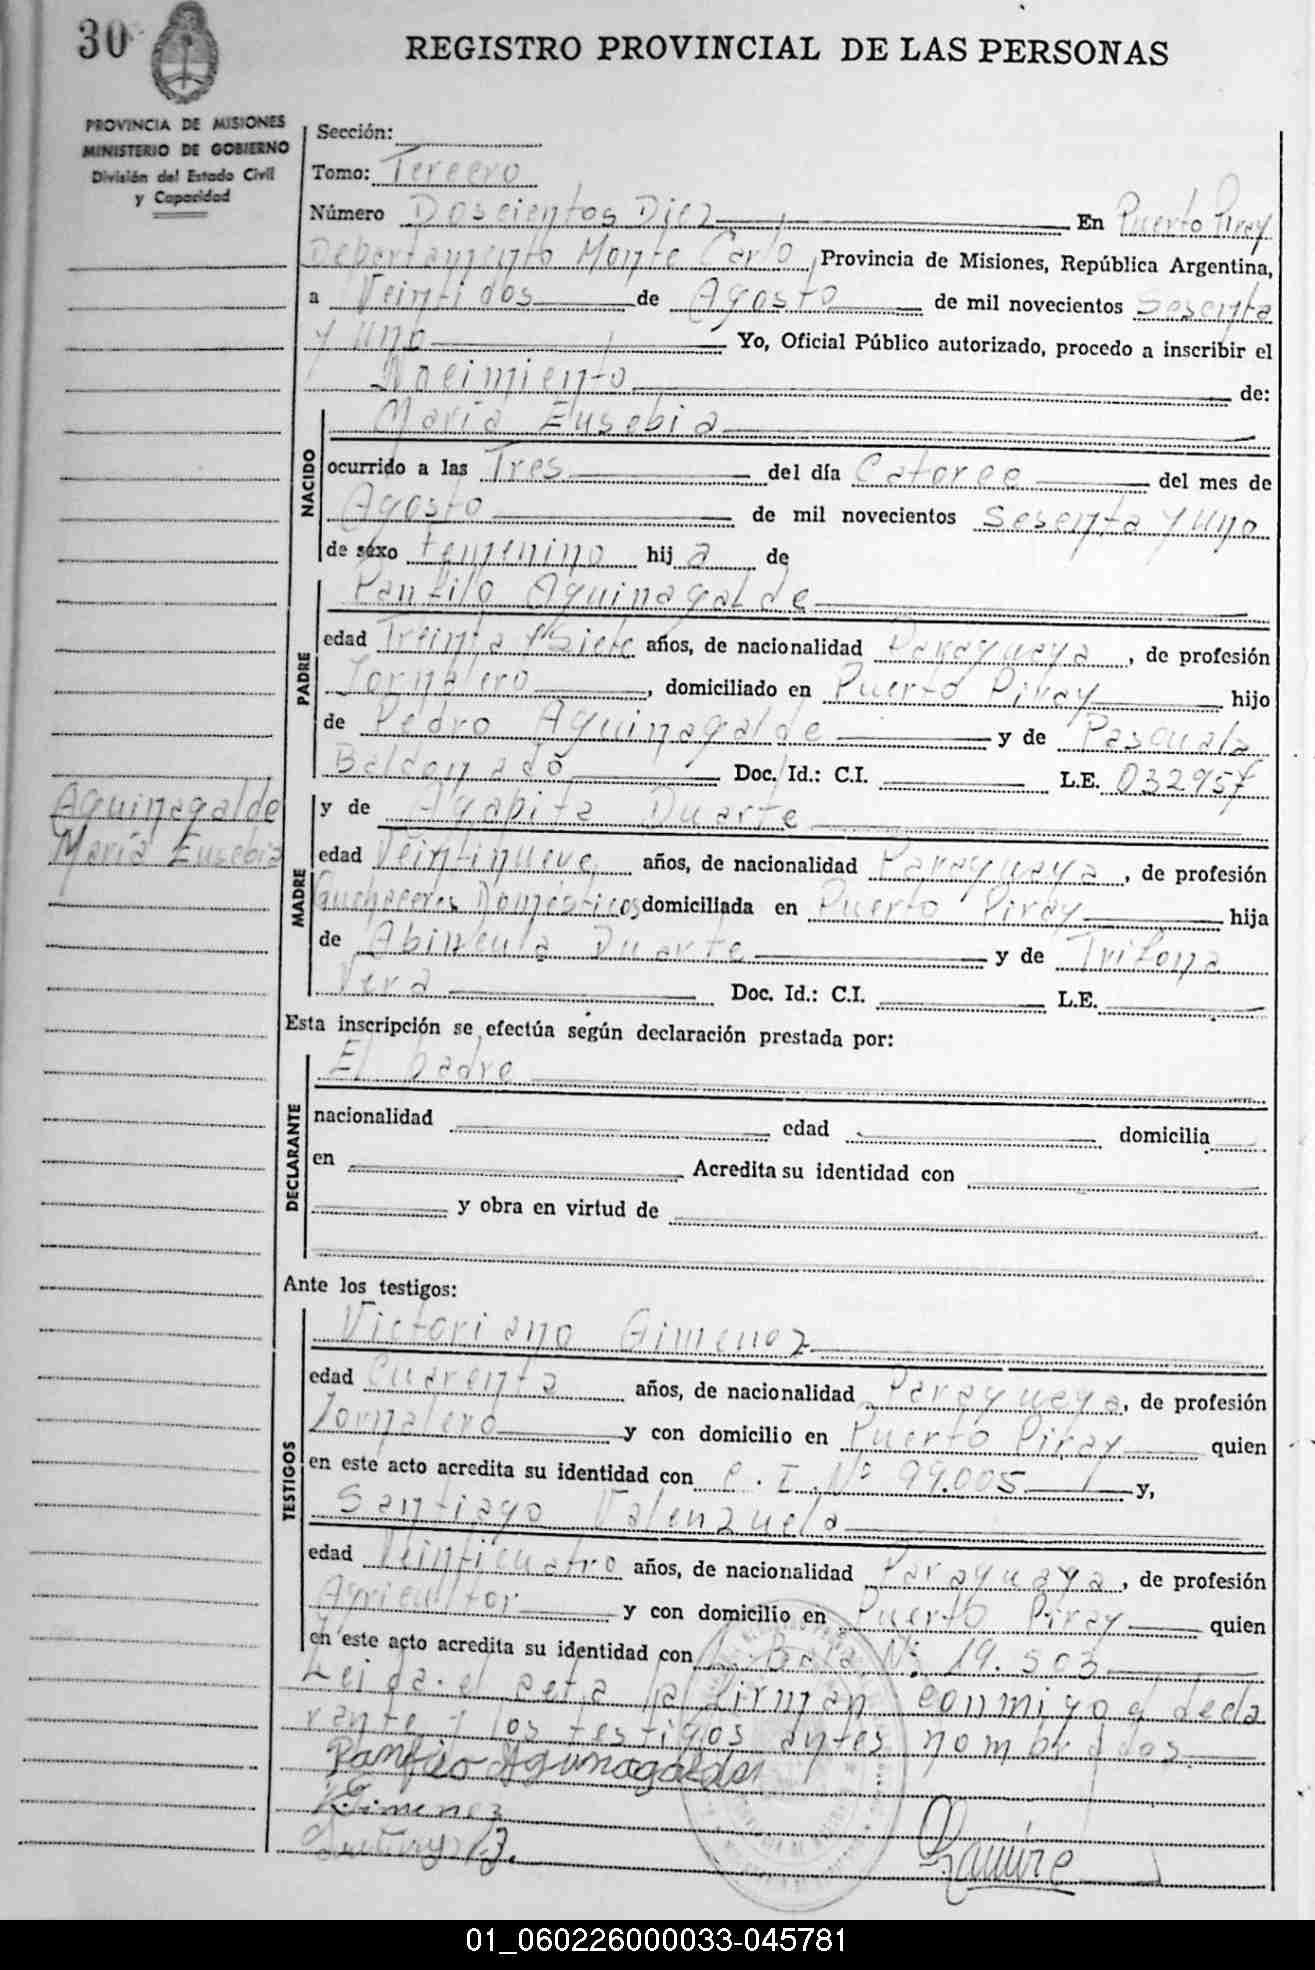 30
REGISTRO PROVINCIAL DE LAS PERSONAS
PROVINCIA DE MISIONES
MINISTERIO DE GOBIERNO
División del Estado Civil
y Capacidad
Sección:
Tomo: Tercero
Número Doscientos Diez En Puerto Piray
Departamento Monte Carlo, Provincia de Misiones, República Argentina,
a Veintidos de Agosto de mil novecientos Sesenta
y uno Yo, Oficial Público autorizado, procedo a inscribir el
Nacimiento de:
NACIDO
María Eusebia
ocurrido a las Tres del día Catorce del mes de
Agosto de mil novecientos Sesenta y uno
de sexo femenino hij a de
PADRE
Panfilo Aguinagalde
edad Treinta y Siete años, de nacionalidad Paraguaya, de profesión
Jornalero, domiciliado en Puerto Piray hijo
de Pedro Aguinagalde y de Pascuala
Baldomado Doc. Id.: C.I. L.E. 032957
Aguinagalde
María Eusebia
MADRE
y de Agapita Duarte
edad Veintinueve años, de nacionalidad Paraguaya, de profesión
Quehaceres Domésticos domiciliada en Puerto Piray hija
de Duarte y de Trifona
Vera Doc. Id.: C.I. L.E.
Esta inscripción se efectúa según declaración prestada por:
DECLARANTE
El padre
nacionalidad edad domicilia
en Acredita su identidad con
y obra en virtud de
Ante los testigos:
TESTIGOS
Victoriano Gimenez
edad Cuarenta años, de nacionalidad Paraguaya, de profesión
Jornalero y con domicilio en Puerto Piray quien
en este acto acredita su identidad con C. I. Nº 99.005 y,
Santiago Valenzuela
edad Veinticuatro años, de nacionalidad Paraguaya, de profesión
Agricultor y con domicilio en Puerto Piray quien
en este acto acredita su identidad con Nº 19.503
Leida el acta la firman conmigo el decla
rante y los testigos antes nombrados
Panfilo Aguinagalde
V. Gimenez
Ramire
01_060226000033-045781